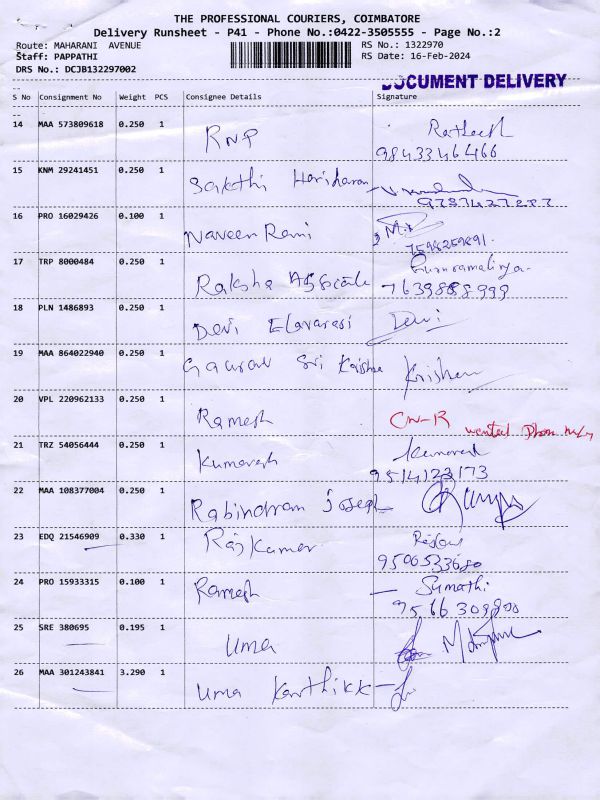 THE PROFESSIONAL COURIERS, COIMBATORE
Delivery Runsheet - P41 - Phone No.:0422-3505555 - Page No.:2
Route: MAHARANI AVENUE RS No.: 1322970
Staff: PAPPATHI RS Date: 16-Feb-2024
DRS No.: DCJB132297002
DOCUMENT DELIVERY
S No Consignment No Weight PCS Consignee Details Signature
14 MAA 573809618 0.250 1 RNP
9843346466
15 KNM 29241451 0.250 1 Sakthi Hariharan
16 PRO 16029426 0.100 1 Naveen Rani
7598259891
17 TRP 8000484 0.250 1 Raksha
7639888999
18 PLN 1486893 0.250 1 Devi Elavarasi Devi
19 MAA 864022940 0.250 1 Gaurav Sri Krishna Krishna
20 VPL 220962133 0.250 1 Ramesh CN-R wanted Phon
21 TRZ 54056444 0.250 1 Kumaresh
9514123173
22 MAA 108377004 0.250 1 Rabindram Joseph
23 EDQ 21546909 0.330 1 Rajkumar
24 PRO 15933315 0.100 1 Ramesh Sumathi
9566309800
25 SRE 380695 0.195 1 Uma
26 MAA 301243841 3.290 1 Uma Karthikk